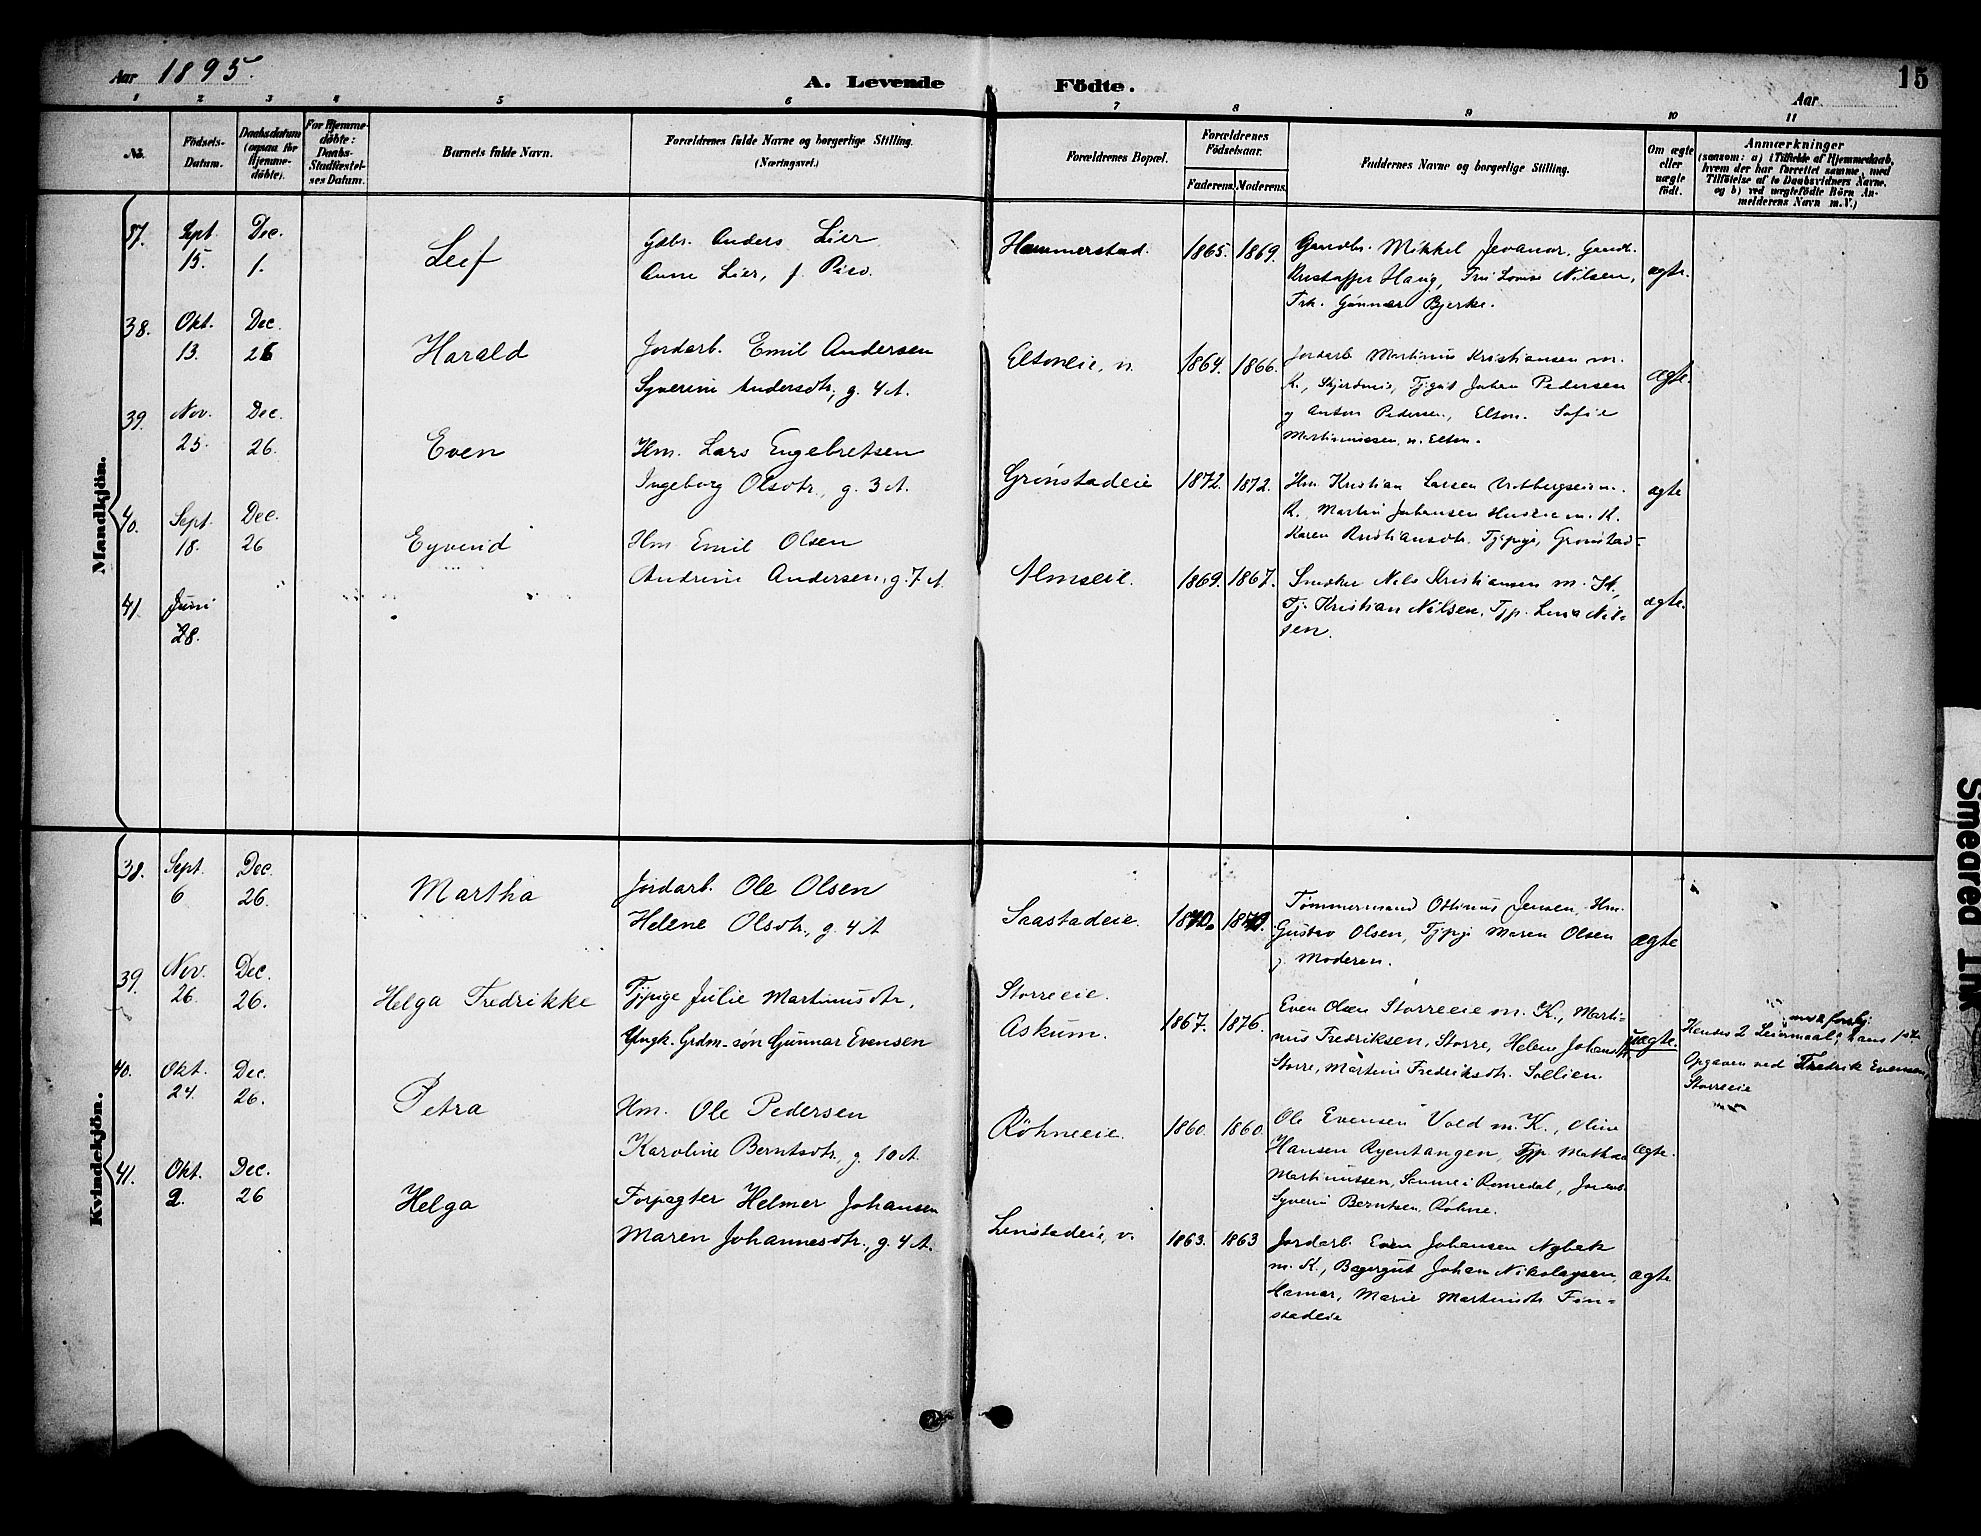 Aar 1895.
A. Levende Födte.
Aar
15
1 2 3 4 5 6 7 8 9 10 11
No.
Födsels-Datum.
Daabsdatum (ogsaa for Hjemme-döbte).
For Hjemme-döbte: Daabs-Stadfæstel-ses Datum.
Barnets fulde Navn.
Forældrenes fulde Navne og borgerlige Stilling.
(Næringsvei.)
Forældrenes Bopæl.
Forældrenes Födselsaar.
Faderens. Moderens.
Faddernes Navne og borgerlige Stilling.
Om ægte eller uægte født.
Anmærkninger
(saasom: a) i Tilfælde af Hjemmedaab,
hvem der har forrettet samme, med
Tilföielse af to Daabsvidners Navne,
og b) ved uægtefödte Börn An-
melderens Navn m.V.)
Mandkjön.
37. Sept 15. Dec. 1. Leif
Gdbr. Anders Lier
Anne Lier, f.
Hammerstad. 1865. 1869.
Gaardbr. Mikkel
Kristoffer Haug, Fru Lovise Nilsen,
Frk. Gunnær Bjerke.
ægte.
38. Okt. 13. Dec. 26 Harald
Jordarb. Emil Andersen
Syverine Andersdtr, g. 4 A.
Eltoneie, n. 1864. 1866.
Jordarb. Martinus Kristiansen m.
K., Tjgut Johan Pedersen
og Anton Pedersen, Elton. Sofie
Martinussen, n. Elton.
ægte.
39. Nov. 25. Dec. 26. Even
Hm. Lars Engebretsen
Ingeborg Olsdtr., g. 3 A.
Grønstadeie 1872. 1872.
Hm. Kristian Larsen
K., Martin Johansen m. K.
Karen Kristiansdtr. Tjpige, Grønstad-
ægte
40. Sept. 18. Dec. 26 Eyvind
Hm. Emil Olsen
Andrine Andersen, g. 7 A
Almseie. 1869. 1867.
Snedker Nils Kristiansen m. K.
Tj. Kristian Nilsen, Tjp. Lina Nil-
sen.
ægte.
41. Juni 28.
Kvindekjön.
38. Sept. 6 Dec. 26. Martha
Jordarb. Ole Olsen
Helene Olsdtr., g. 4 A
Saastadeie. 1870.
Tømmermand Ottinius Jensen, Hm.
Gustav Olsen, Tjpige Maren Olsen
og Moderen.
ægte
39. Nov. 26. Dec. 26. Helga Fredrikke
Tjpige Julie Martinusdtr.
Ungk. Grdm.-søn Gunnar Evensen
Storreeie.
Askum. 1867. 1876.
Even Olsen Storreeie m. K., Marti-
nus Fredriksen, Storre, Helene Johansdtr
Storre, Martine Fredriksdtr. Sollien
uægte.
Hendes 2 Leiermaal; hans 1ste
Opgaven ved Fredrik Evensen,
Storreeie
40. Okt. 24. Dec. 26. Petra
Hm. Ole Pedersen
Karoline Berntsdtr., g. 10 A.
Röhneeie. 1860. 1860.
Ole Evensen Vold m. K., Oline
Hansen Ryentangen, Tjp. Mathea
Martinussen, Romedal,
Syverin Berntsen Röhne.
ægte.
41. Okt. 2. Dec. 26 Helga
Forpagter Helmer Johansen
Maren Johannesdtr., g. 4 A.
Linstadeie, v. 1863. 1863
Jordarb. Even Johansen Nybak
m. K., Bagergut Johan Nikolaysen,
Hamar, Marie Martinsdtr Fin-
stadeie
ægte
Smeared Ink